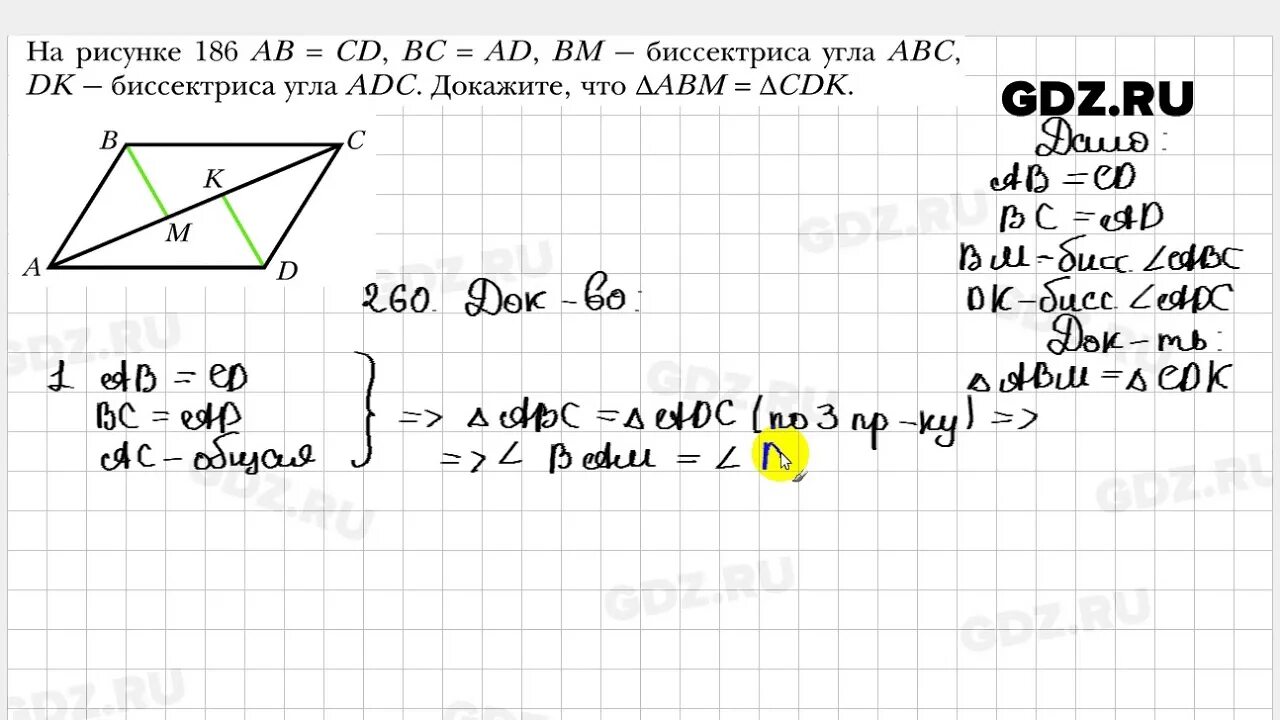 На рисунке 186 AB = CD, BC = AD, BM — биссектриса угла ABC,
DK — биссектриса угла ADC. Докажите, что ΔABM = ΔCDK.
GDZ.RU
B
C
K
M
A
D
Дано:
AB = CD
BC = AD
BM - бисс. ∠ABC
DK - бисс. ∠ADC
Док-ть:
ΔABM = ΔCDK
260. Док-во:
1 AB = CD
BC = AD
AC - общая
=> ΔABC = ΔADC (по 3 пр-ку) =>
=> ∠ BAM = ∠
GDZ.RU
GDZ.RU
GDZ.RU
GDZ.RU
GDZ.RU
GDZ.RU
GDZ.RU
GDZ.RU
GDZ.RU